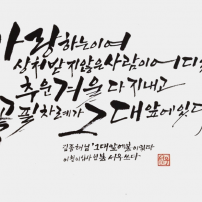 사랑하는이여
상처받지않은사람이어디
추운 겨울 다지내고
꽃필 차례가 그대앞에있다
김종해님 '그대앞에봄이있다